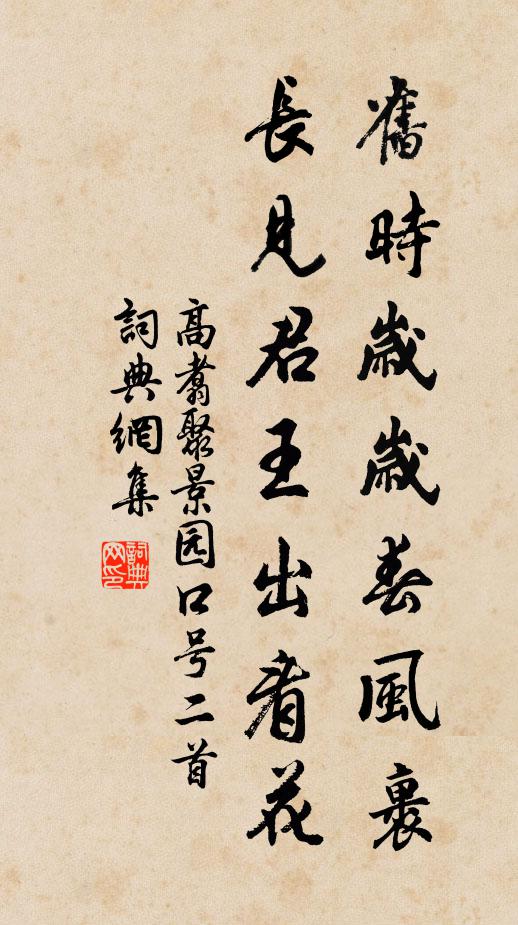 舊時歲歲春風裏
長見君王出看花
高翥聚景园口号二首
詞典網集
詞典網印